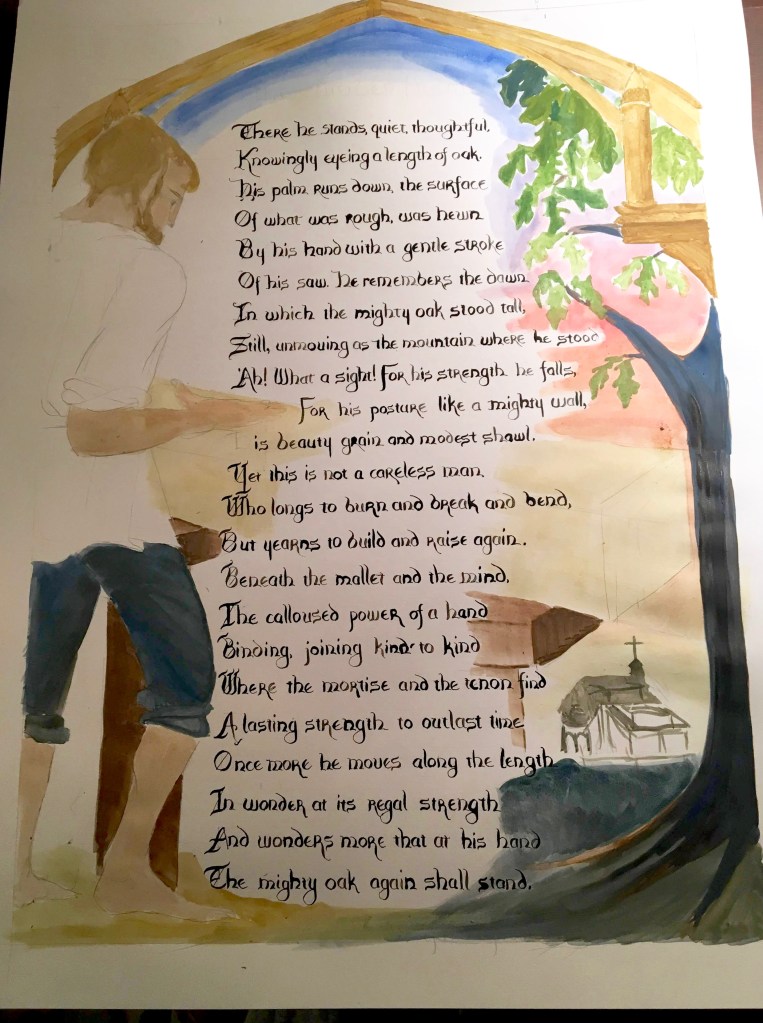 There he stands, quiet, thoughtful,
Knowingly eyeing a length of oak.
His palm runs down, the surface
Of what was rough, was hewn
By his hand with a gentle stroke
Of his saw. He remembers the dawn
In which the mighty oak stood tall,
Still, unmoving as the mountain where he stood
'Ah! What a sight! For his strength he falls,
For his posture like a mighty wall,
is beauty grain and modest shawl.
Yet this is not a careless man.
Who longs to burn and break and bend,
But yearns to build and raise again.
Beneath the mallet and the mind,
The calloused power of a hand
Binding, joining kind to kind
Where the mortise and the tenon find
A lasting strength to outlast time
Once more he moves along the length
In wonder at its regal strength
And wonders more that at his hand
The mighty oak again shall stand.